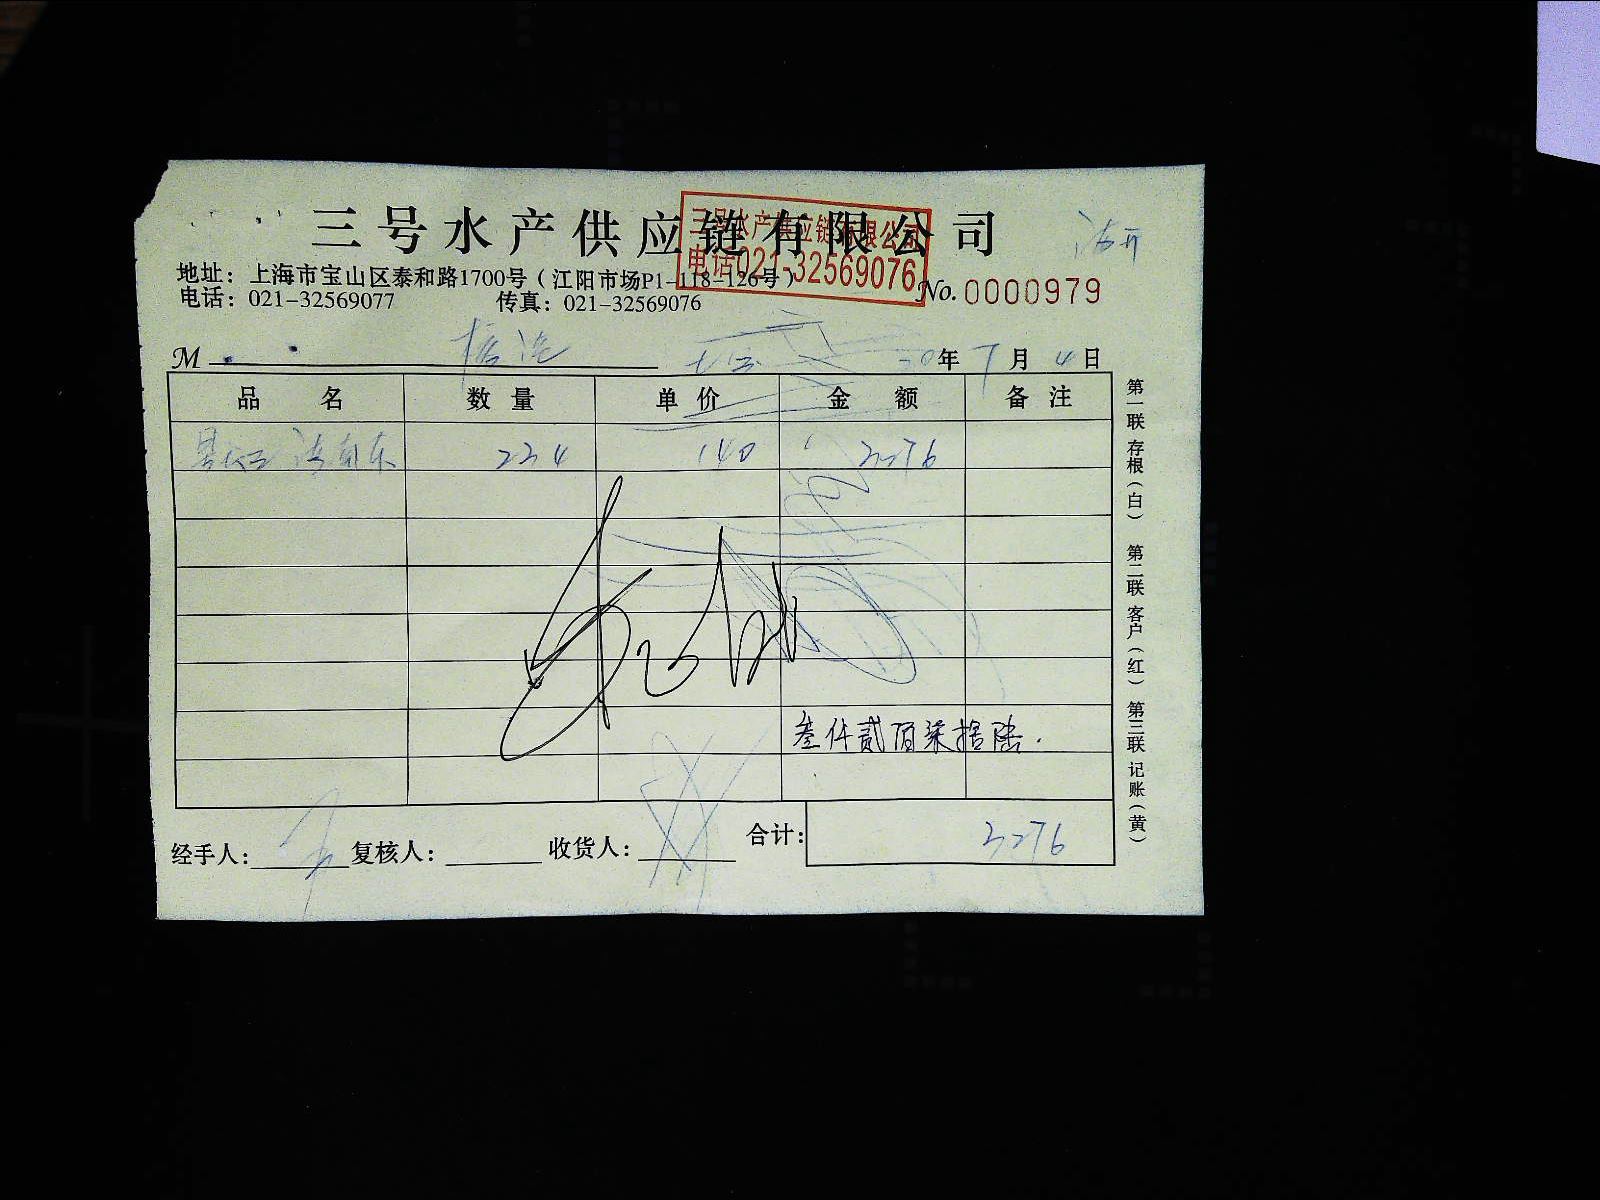 三号水产供应链有限公司
三号水产供应链有限公司
电话021-32569076
地址：上海市宝山区泰和路1700号（江阳市场P1-118-126号）
电话：021-32569077 传真：021-32569076
No. 0000979
M 20年 7月 4日
品名 数量 单价 金额 备注
234 140 3276
叁仟贰佰柒拾陆.
合计： 3276
经手人： 复核人： 收货人：
第一联 存根（白） 第二联 客户（红） 第三联 记账（黄）